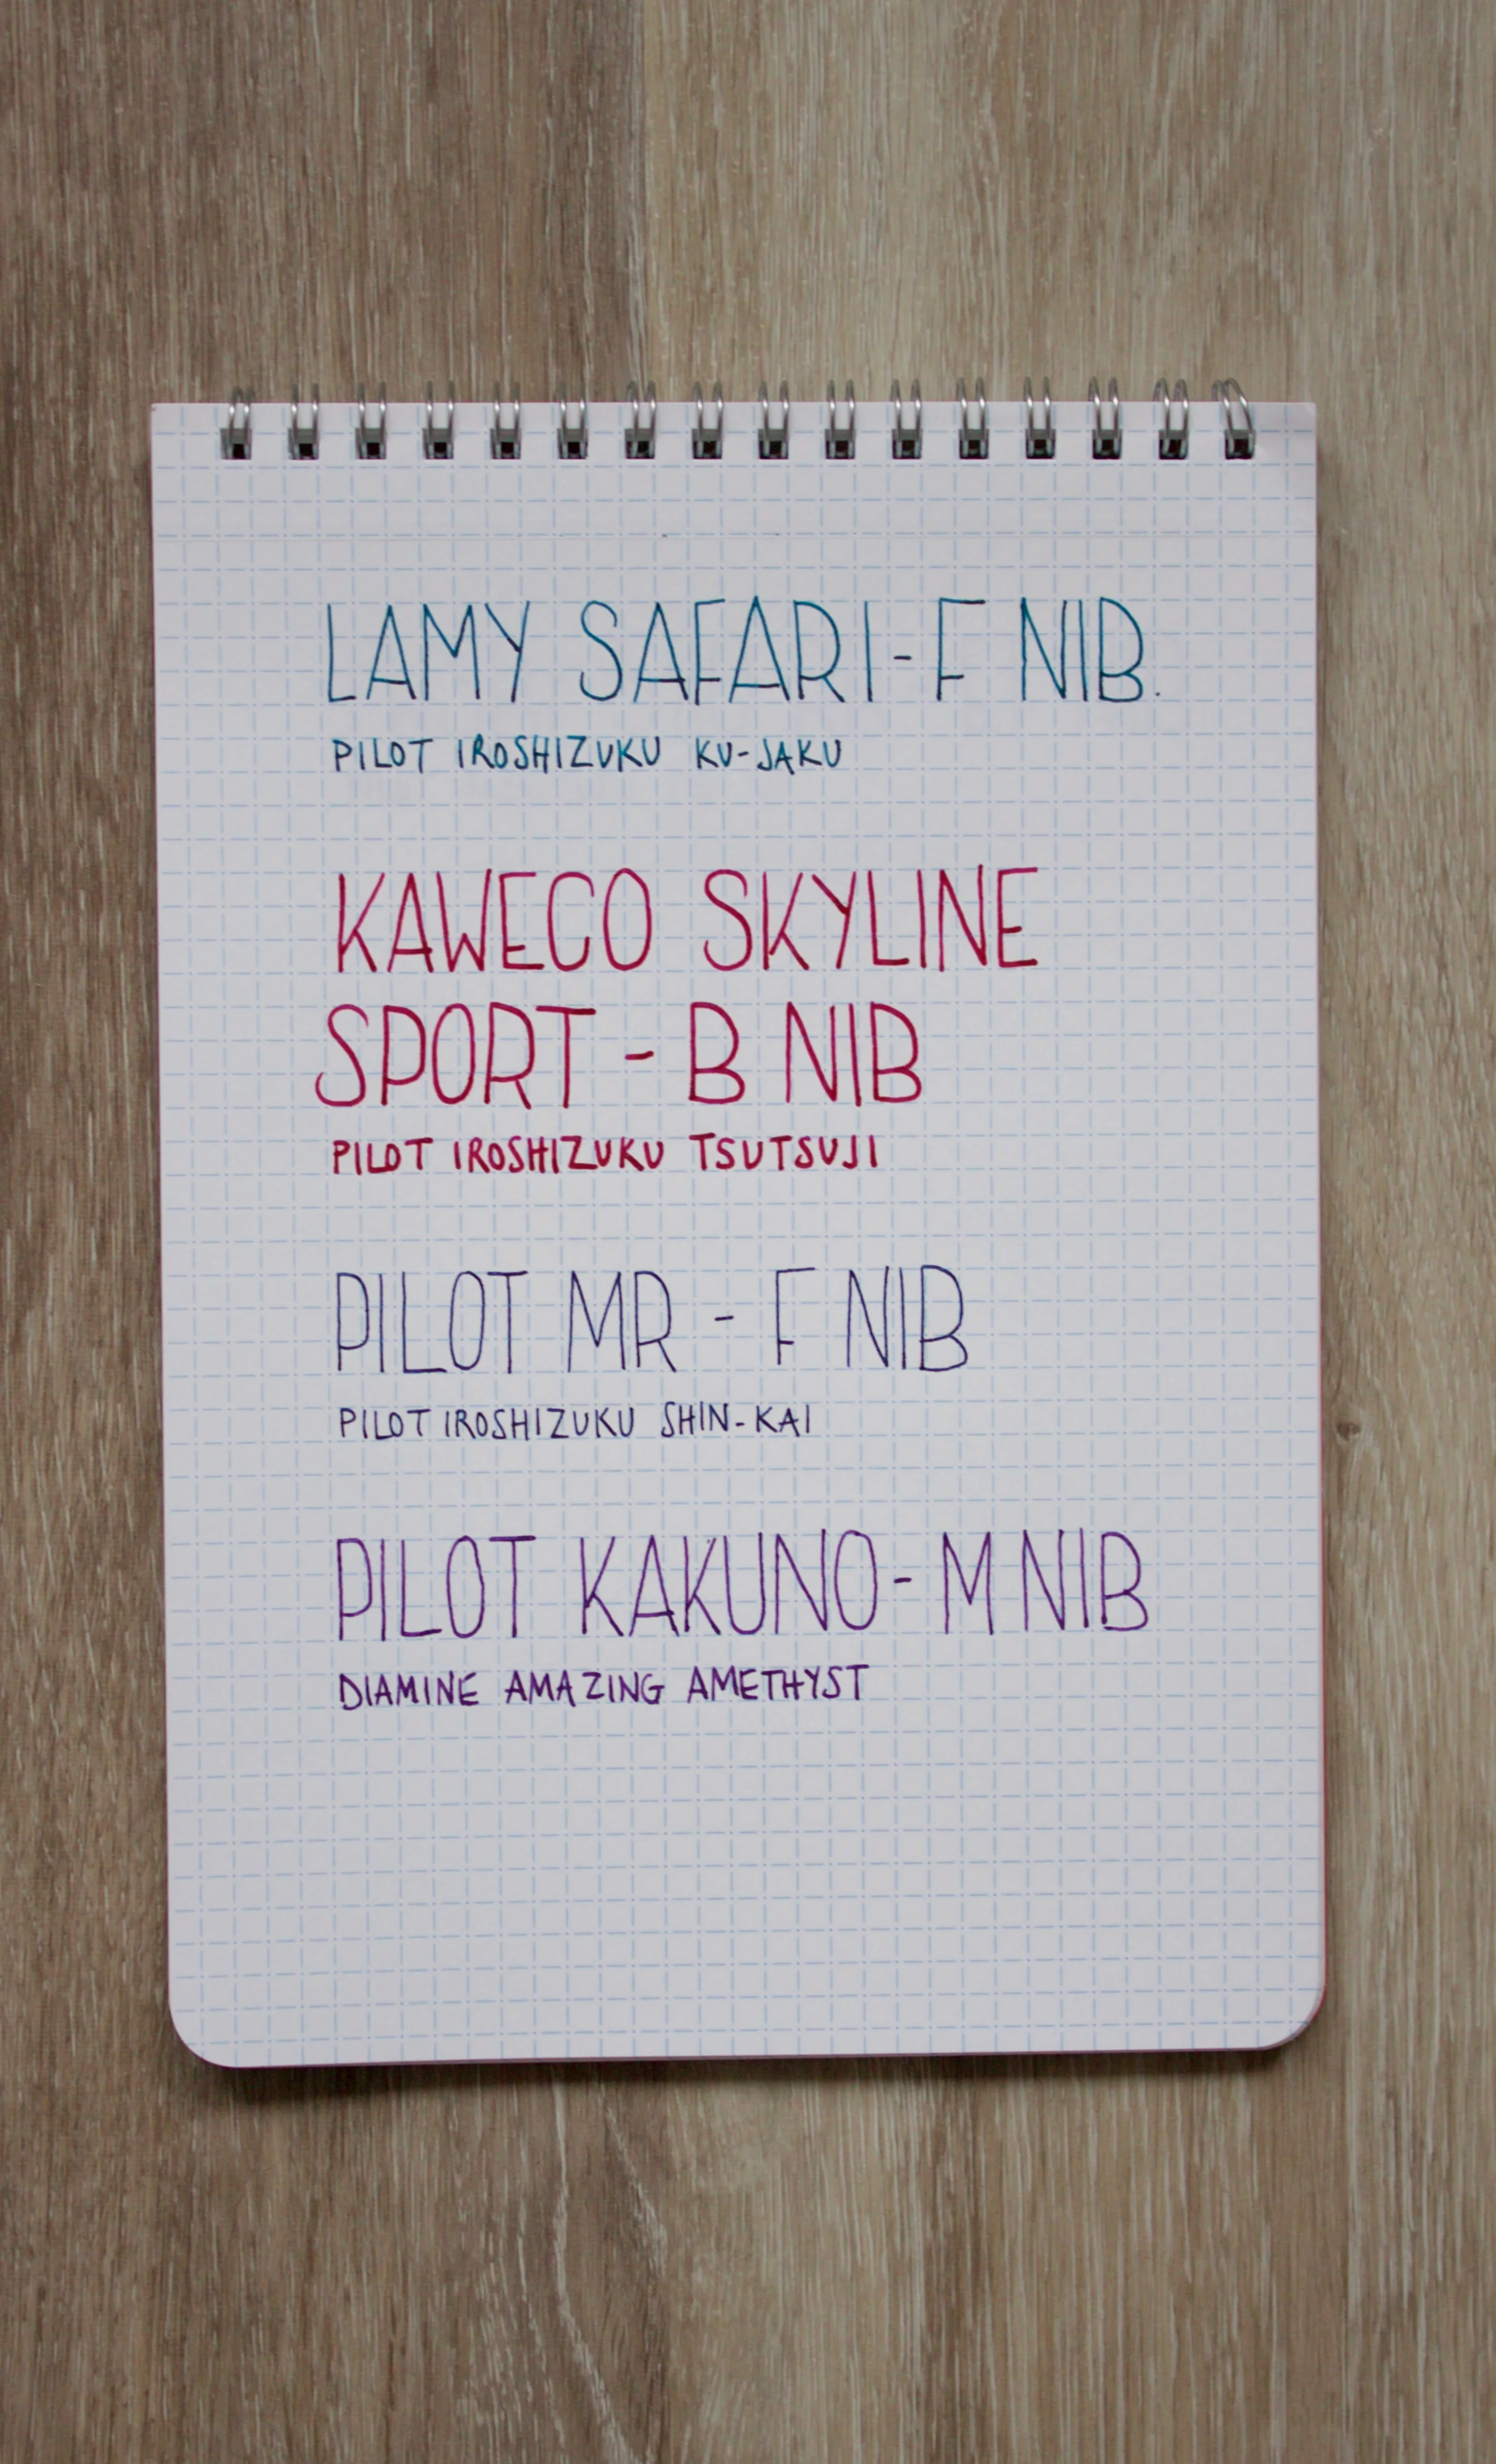 LAMY SAFARI-F NIB.
PILOT IROSHIZUKU KU-JAKU
KAWECO SKYLINE
SPORT - B NIB
PILOT IROSHIZUKU TSUTSUJI
PILOT MR - F NIB
PILOT IROSHIZUKU SHIN-KAI
PILOT KAKUNO-M NIB
DIAMINE AMAZING AMETHYST